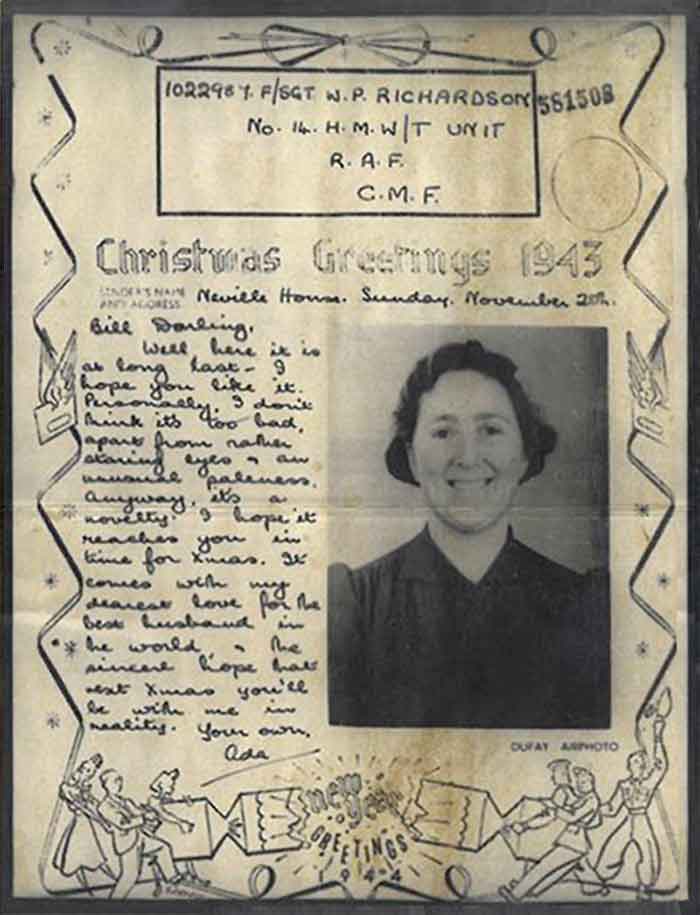 1022987. F/SGT W. P. RICHARDSON
581508
No. 14. H. M. W/T UNIT
R. A. F.
C. M. F.
Christmas Greetings 1943
SENDER'S NAME
AND ADDRESS
Neville House. Sunday. November 28th.
Bill Darling,
Well here it is
at long last – I
hope you like it.
Personally, I don't
think it's too bad,
apart from rather
staring eyes & an
unusual paleness.
Anyway, it's a
novelty. I hope it
reaches you in
time for Xmas. It
comes with my
dearest love for the
best husband in
the world, & the
sincere hope that
next Xmas you'll
be with me in
reality. Your own,
Ada
DUFAY AIRPHOTO
New Year
GREETINGS
1944